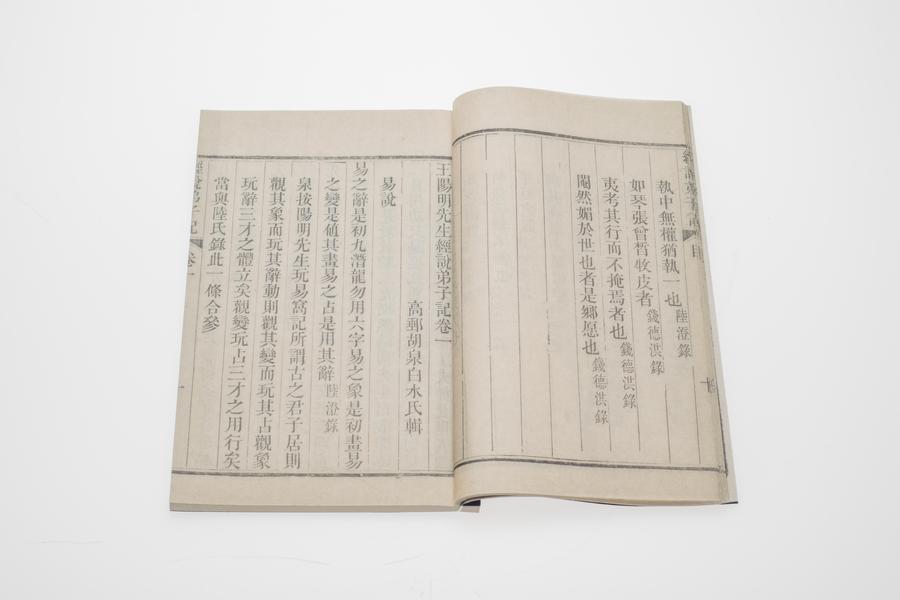 執中無權猶執一也 陸澄錄
如琴張曾晳牧皮者 錢德洪錄
夷考其行而不掩焉者也 錢德洪錄
閹然媚於世也者是鄉愿也 錢德洪錄
王陽明先生經說弟子記卷一
高郵胡泉白水氏輯
易說
易之辭是初九潛龍勿用六字易之象是初畫易
之變是值其畫易之占是用其辭 陸澄錄
泉按陽明先生玩易窩記所謂古之君子居則
觀其象而玩其辭動則觀其變而玩其占觀象
玩辭三才之體立矣觀變玩占三才之用行矣
當與陸氏錄此一條合參
經說弟子記 卷一